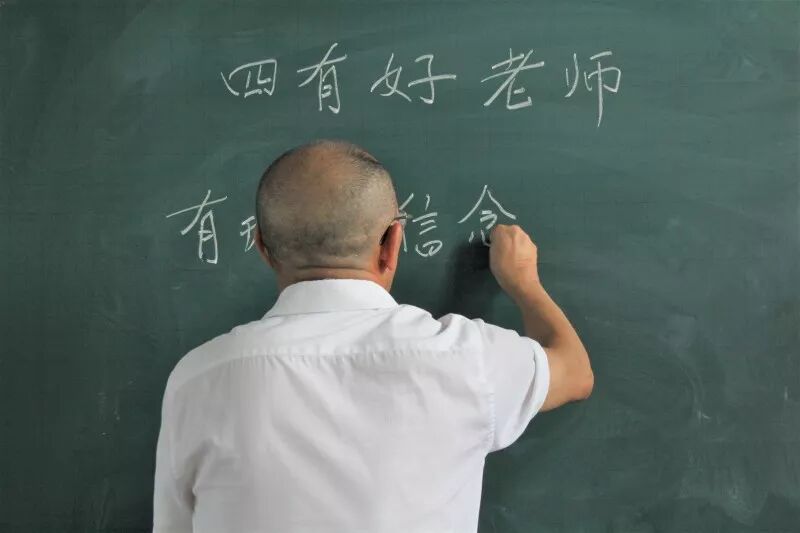 四有好老师
有 信念